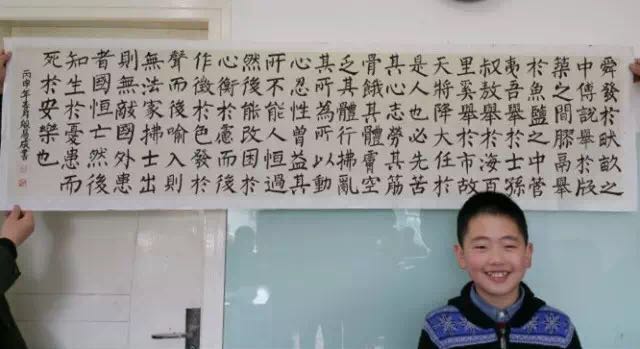 舜發於畎畝之
中傅說舉於版
築之間膠鬲舉
於魚鹽之中管
夷吾舉於士孫
叔敖舉於海百
里奚舉於市故
天將降大任於
是人也必先苦
其心志勞其筋
骨餓其體膚空
乏其體行拂亂
其所為所以動
心忍性曾益其
所不能人恒過
然後能改困於
心衡於慮而後
作徵於色發於
聲而後喻入則
無法家拂士出
則無敵國外患
者國恒亡然後
知生於憂患而
死於安樂也
丙申年春月書